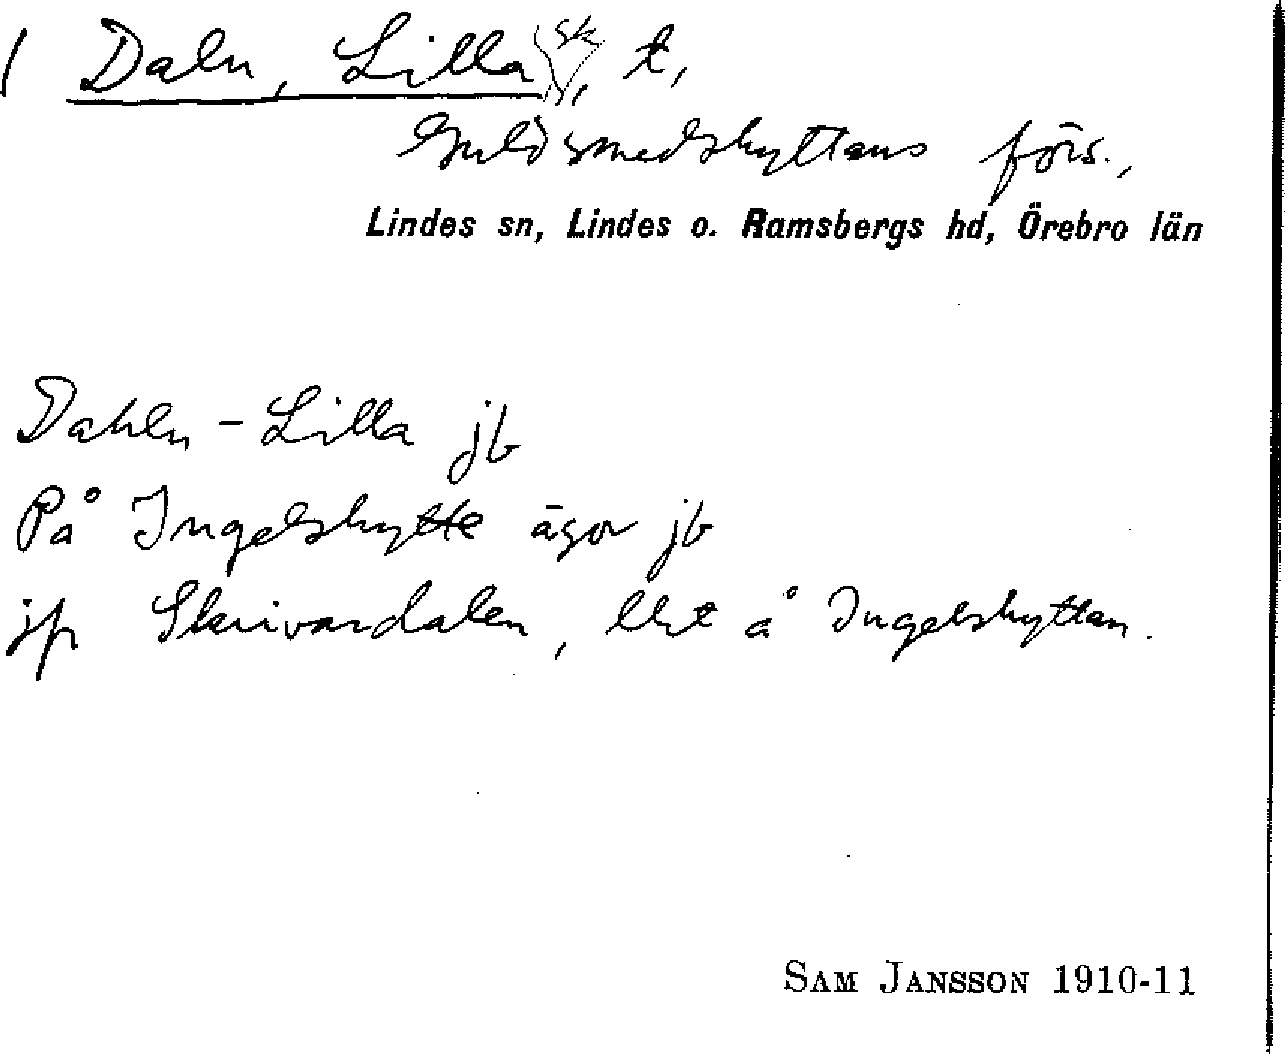 Daln, Lilla, sk t,
Guldsmedshyttans förs.,
Lindes sn, Lindes o. Ramsbergs hd, Örebro län
Dahln - Lilla jb
På Ingelshytte ägor jb
jfr Skrivardalen, lht å Ingelshyttan.
SAM JANSSON 1910-11